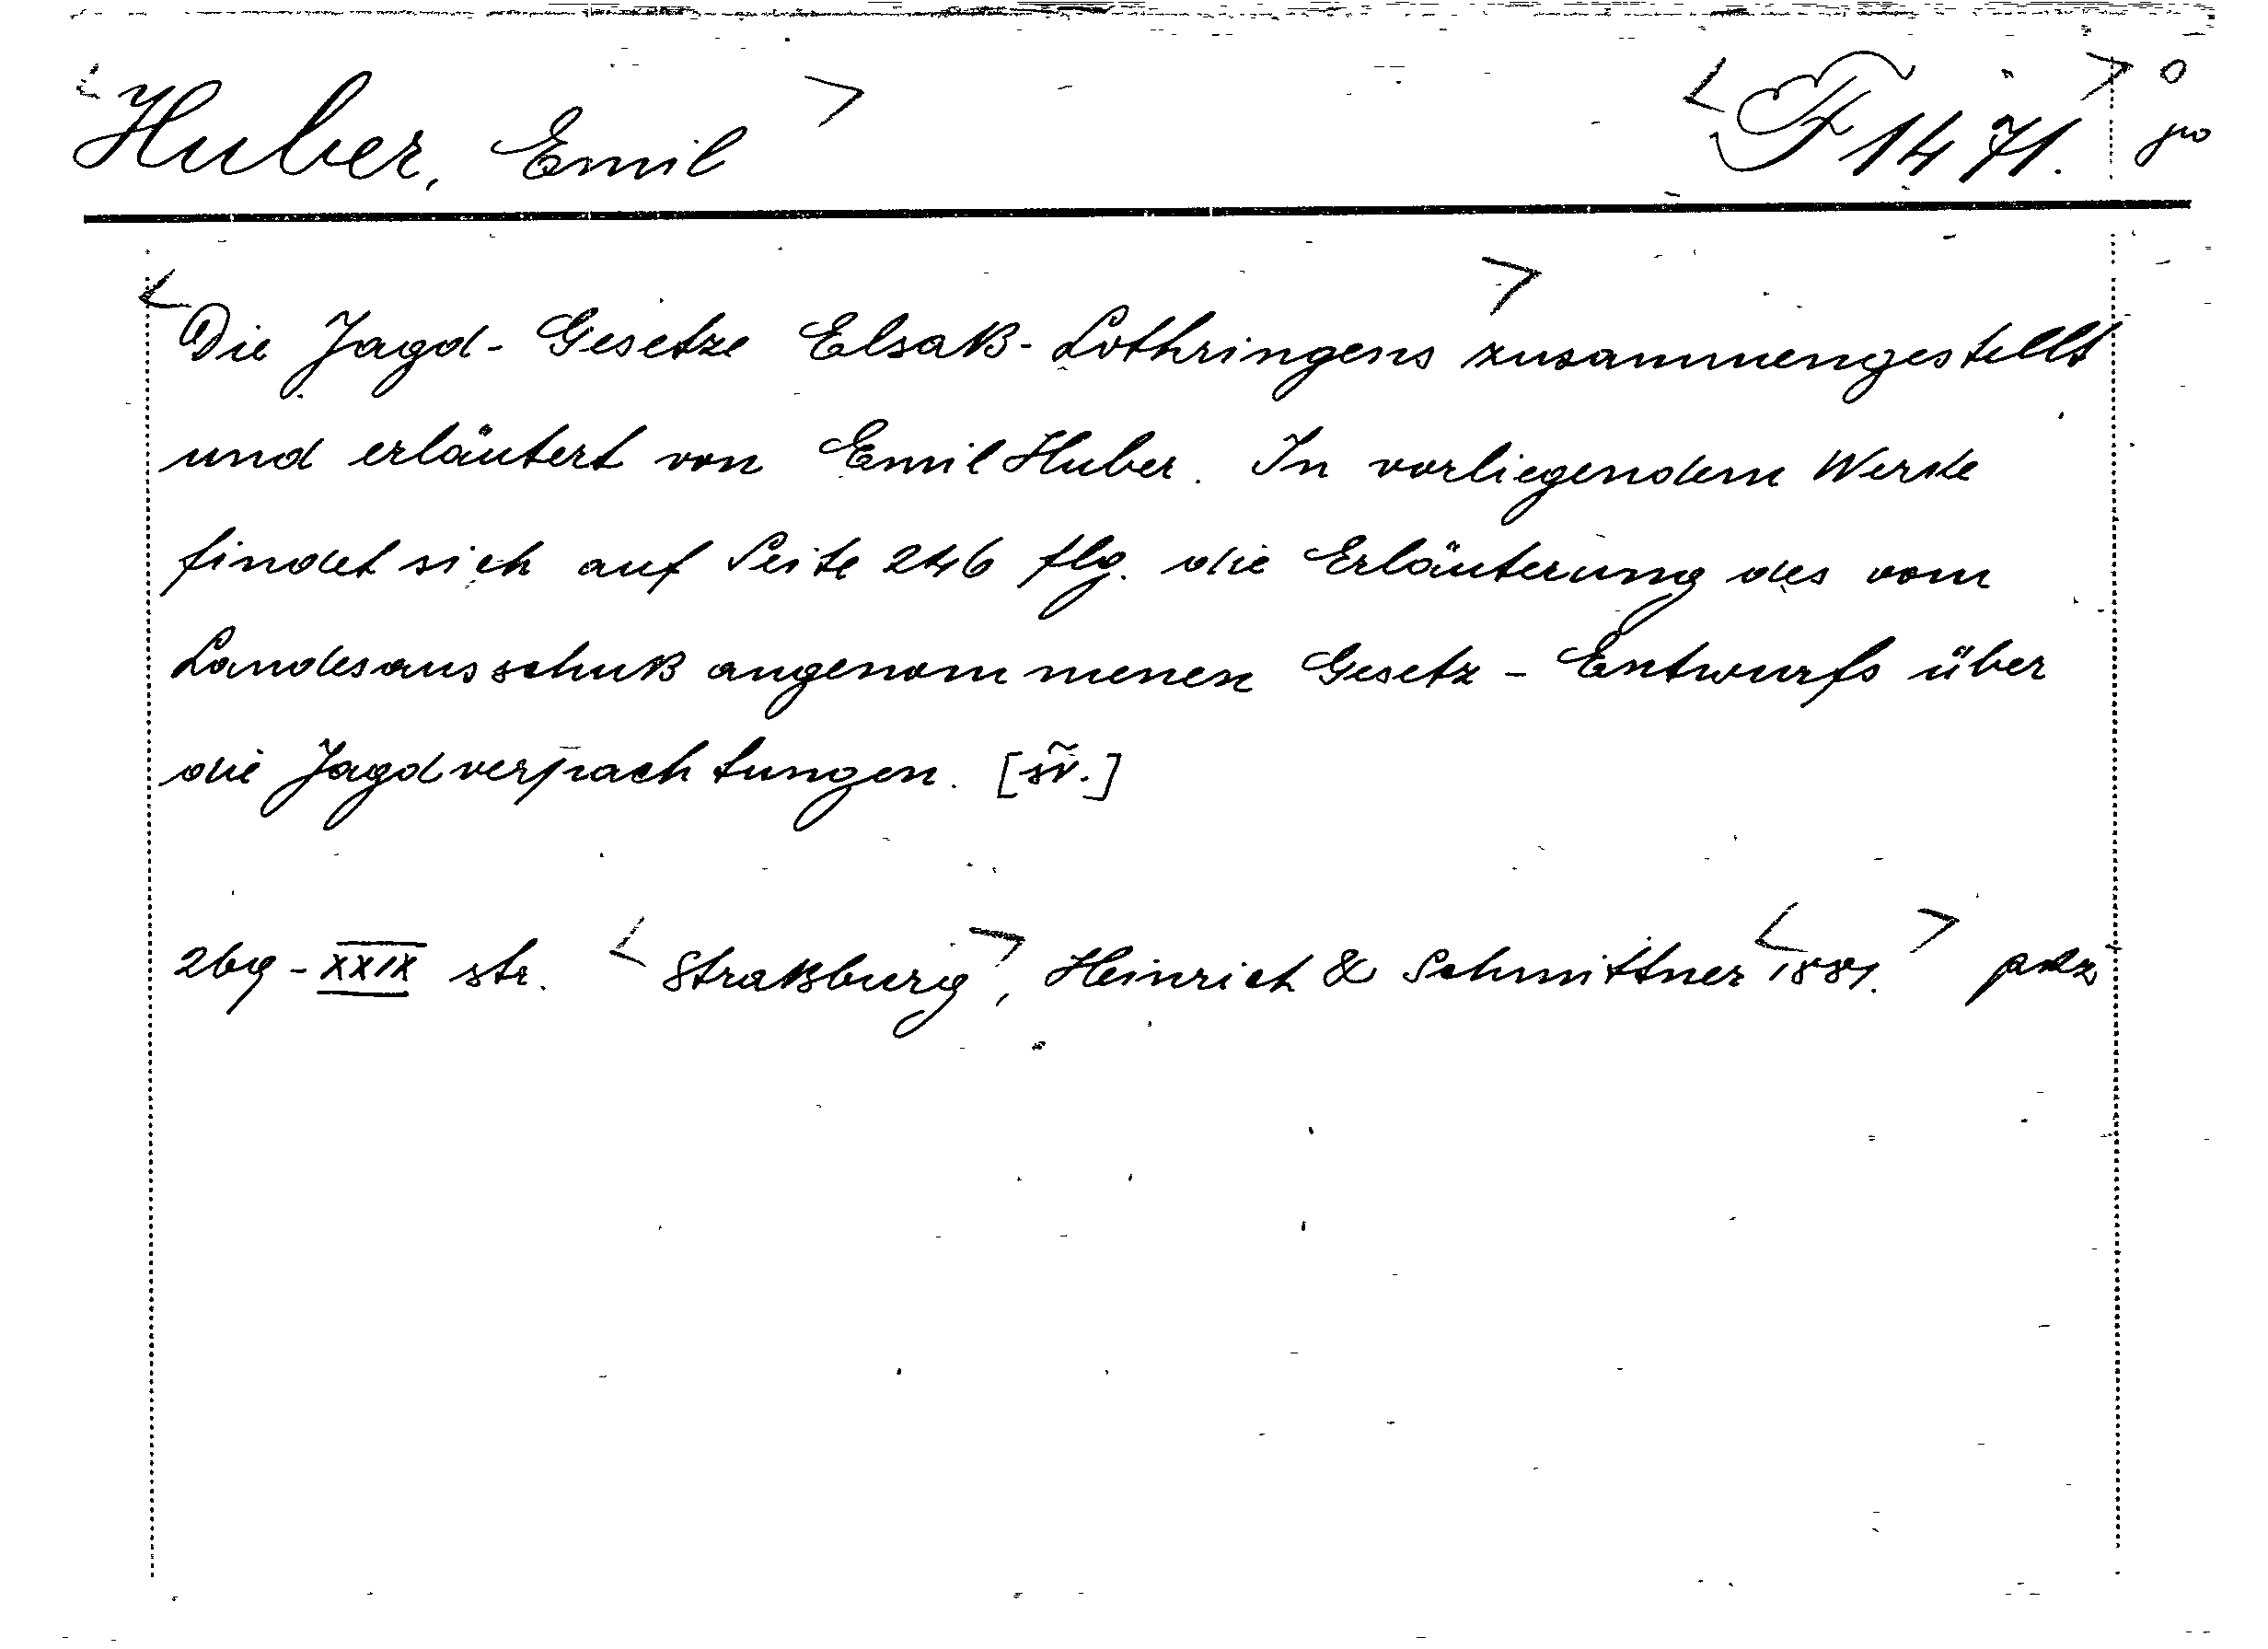 <Huber, Emil> <F 1471.> o
Die Jagd-Gesetze Elsaß-Lothringens> zusammengestellt
und erläutert von Emil Huber. In vorliegendem Werke
findet sich auf Seite 246 flg. die Erläuterung des vom
Landesausschuß angenommenen Gesetz-Entwurfs über
die Jagdverpachtungen.
XXIX str. <Straßburg>, Heinrich & Schmittner <1881.>